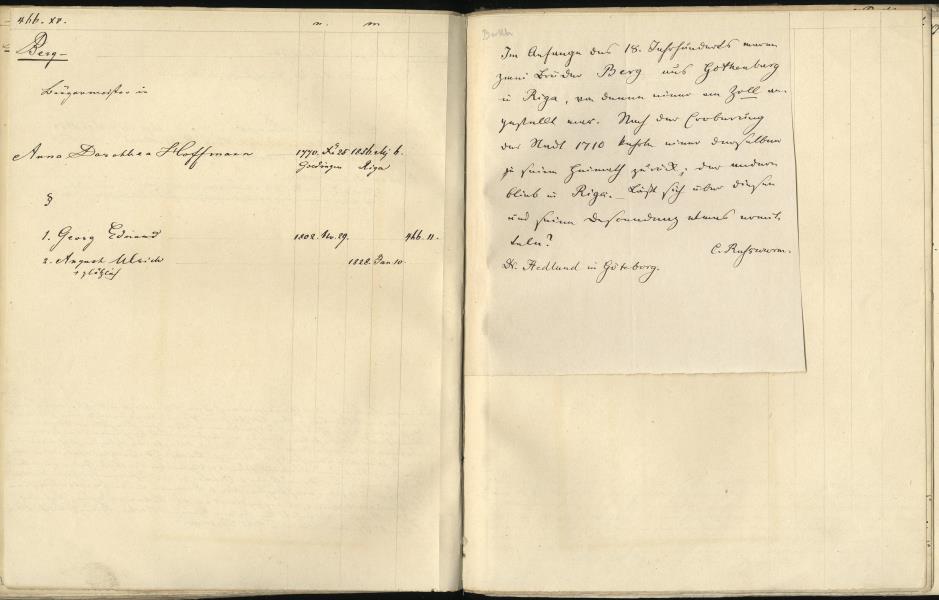 466. XV.
n. m
Berg
Bürgermeister in
Anna Dorothea Hoffmann 1770. 25 1856. 6.
Goldingen Riga
§
1. Georg Eduard 1802. No. 29. 466. 11.
2. August Ulrich 1828. Jan 10.
† plötzlich
Im Anfange des 18. Jahrhunderts waren
zwei Brüder Berg aus Gothenburg
in Riga, von denen einer am Zoll an-
gestellt war. Nach der Eroberung
der Stadt 1710 kehrte einer derselben
in seine Heimath zurück, der andere
blieb in Riga. – Läßt sich über diesen
und seine Descendenz etwas ermit-
teln?
C. Russwurm.
Dr. Hedlund in Göteborg.